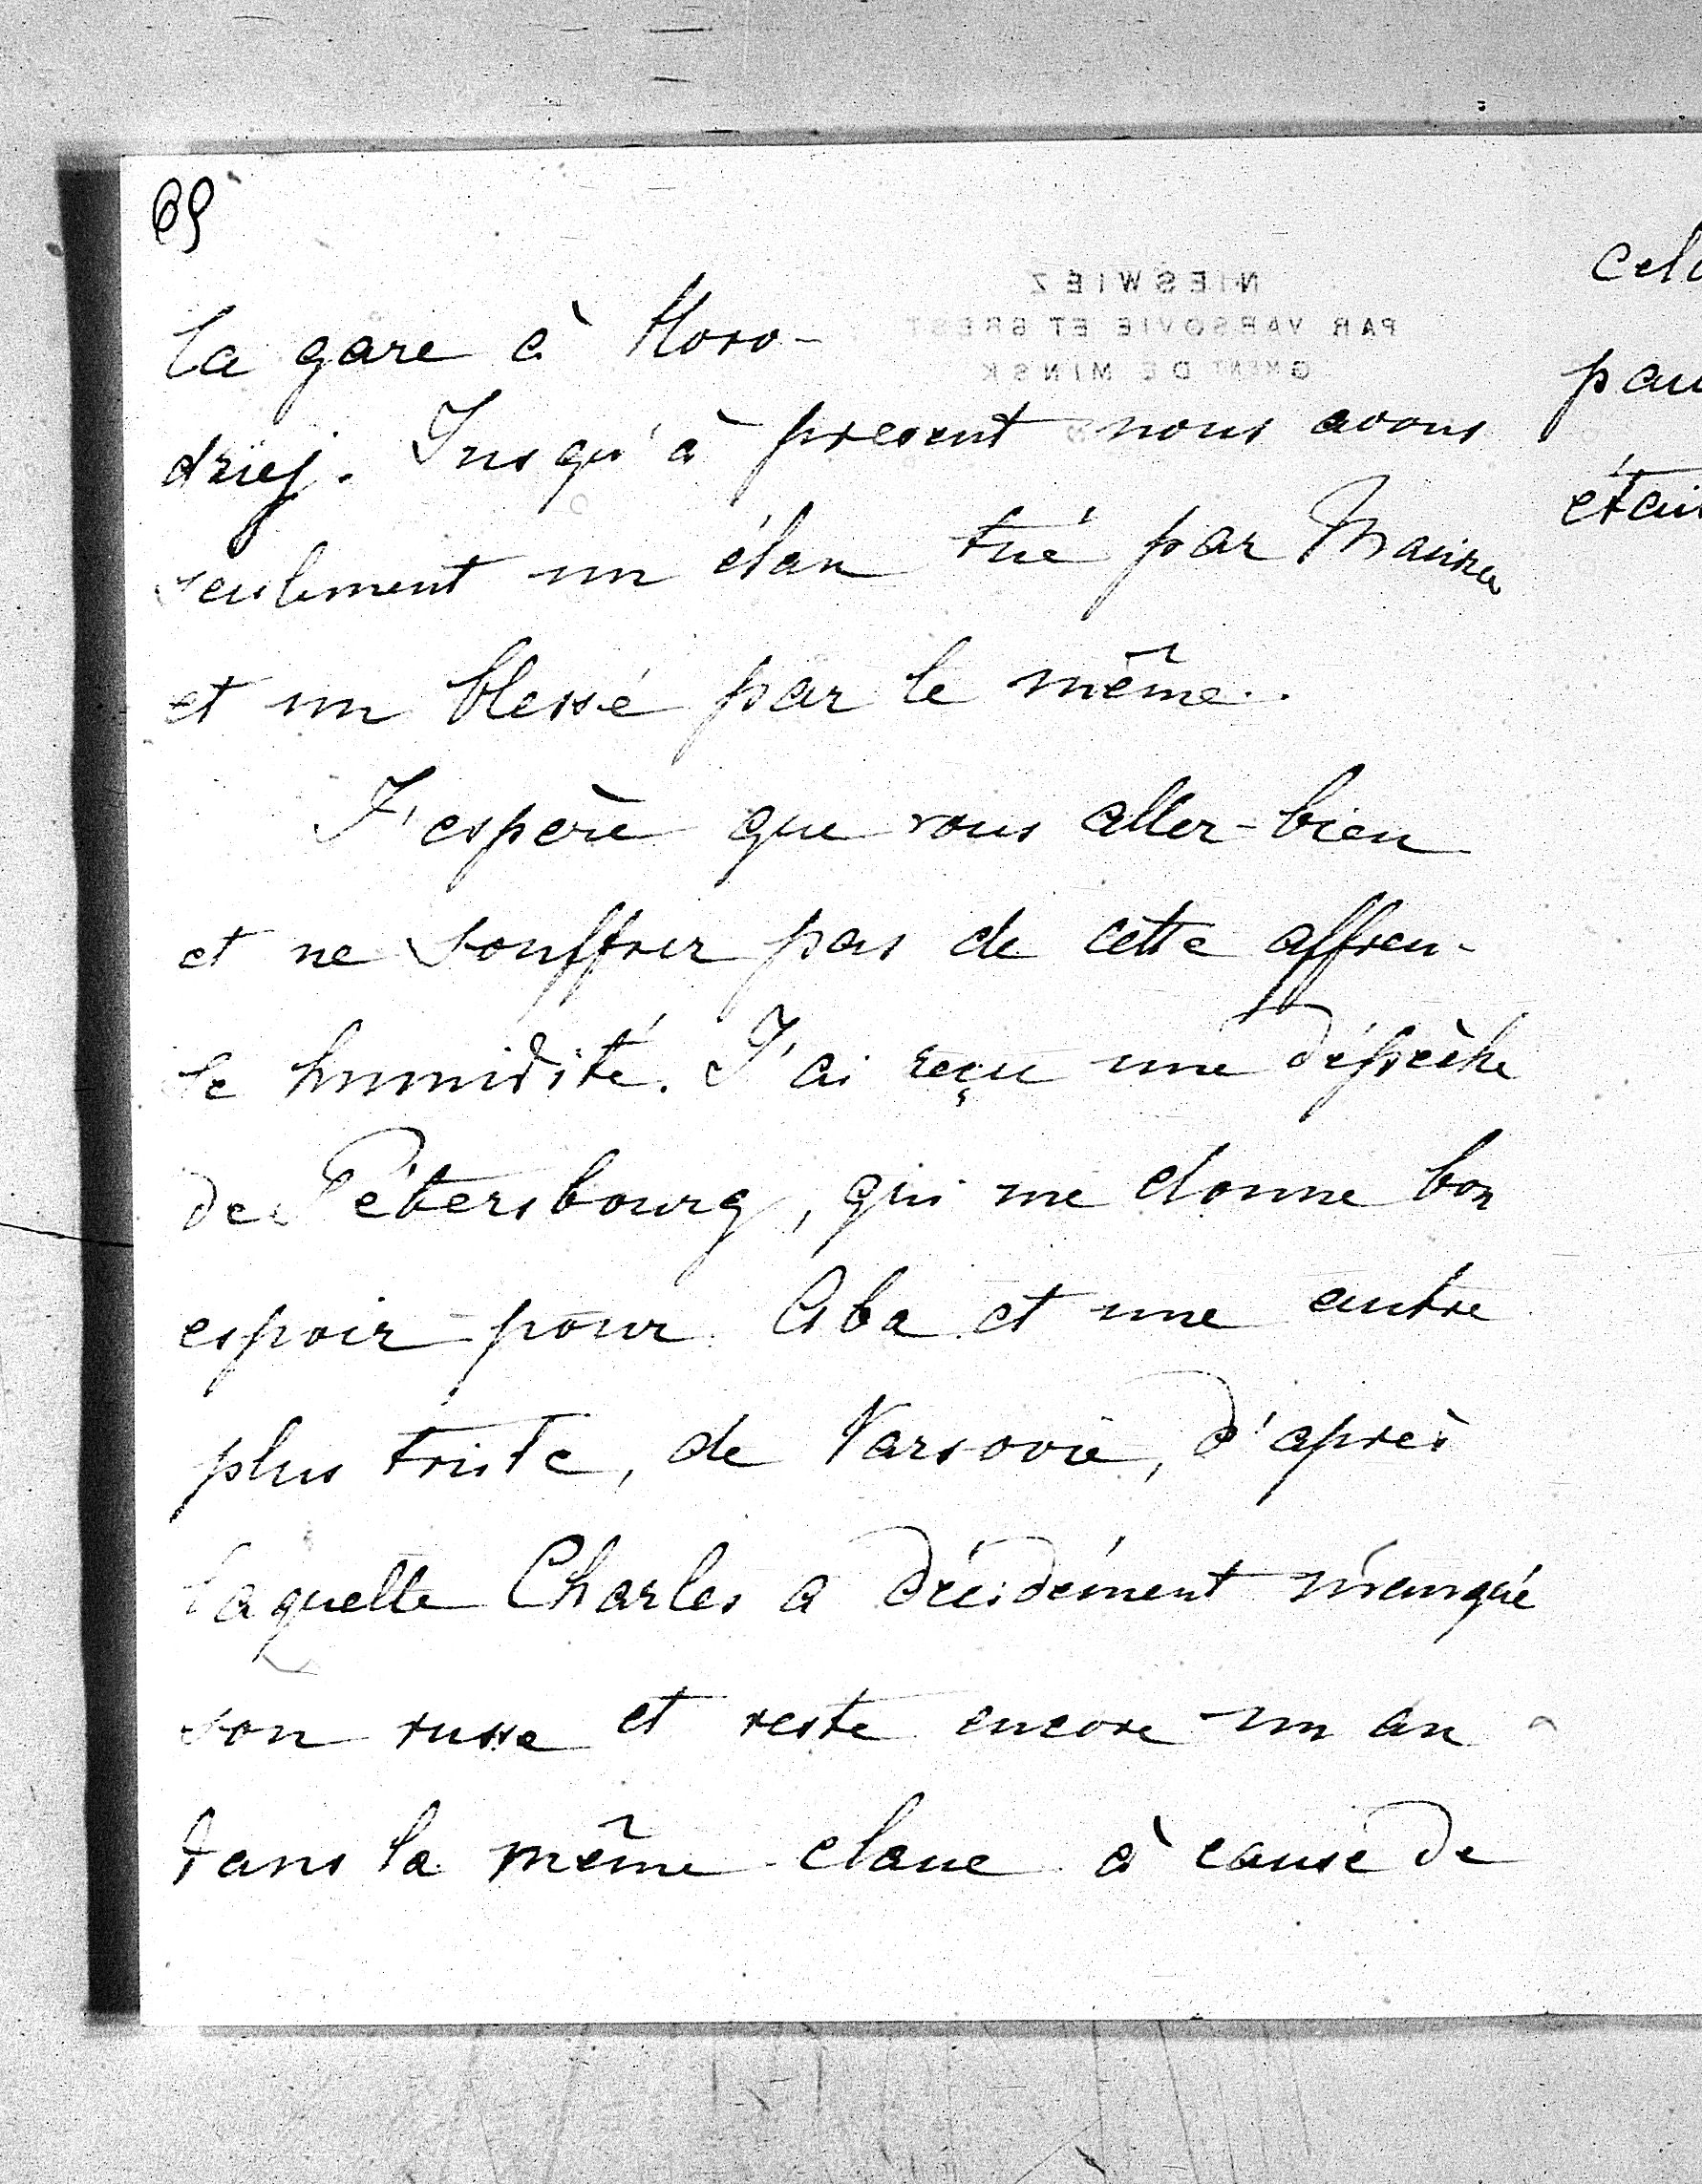 69
la gare à Horo-
dziej. Jusqu'à present nous avons
seulement un élan tué par
et un blessé par le même.
J'espère que vous allez bien
et ne souffrez pas de cette affreu-
se humidité. J'ai reçu une dépèche
de Pétersbourg, qui me donne bon
espoir pour Aba et une autre
plus triste, de Varsovie, d'après
laquelle Charles a décidément manqué
son russe et reste encore un an
dans la même classe à cause de
NIESWIEZ
PAR VARSOVIE ET BREST
GNENT DE MINSK